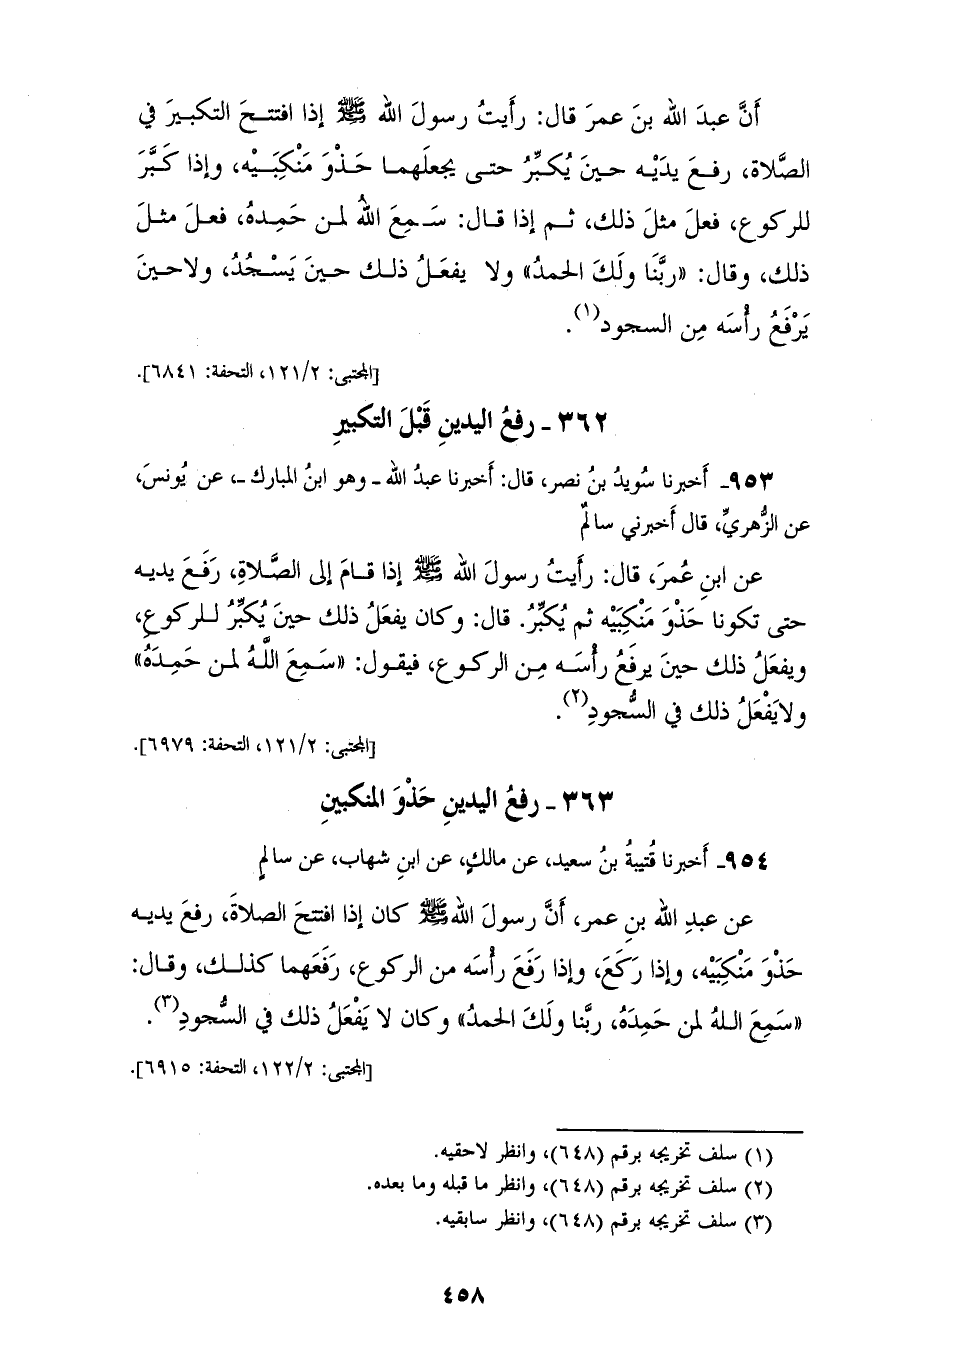 أَنَّ عبدَ الله بنَ عمرَ قال: رأَيتُ رسولَ الله ﷺ إذا افتتحَ التكبيرَ في
الصَّلاة، رفعَ يدَيْه حينَ يُكبِّرُ حتى يجعلَهما حَذْوَ مَنْكِبَيْه، وإذا كَبَّرَ
للركوع، فعلَ مثلَ ذلك، ثم إذا قال: سَمِعَ اللهُ لمن حَمِدهُ، فعلَ مثلَ
ذلك، وقال: «ربَّنا ولَكَ الحمدُ» ولا يفعَلُ ذلك حينَ يَسْجُدُ، ولاحينَ
يَرْفَعُ رأْسَه مِن السجود(١).
[المجتبى: ١٢١/٢، التحفة: ٦٨٤١].
٣٦٢ ـ رفعُ اليدينِ قَبْلَ التكبيرِ
٩٥٣ـ أَخبرنا سُويدُ بنُ نصر، قال: أَخبرنا عبدُ الله ـ وهو ابنُ المبارك ـ، عن يُونسَ،
عن الزُّهريِّ، قال أَخبرني سالمٌ
عن ابنِ عُمرَ، قال: رأَيتُ رسولَ الله ﷺ إذا قامَ إلى الصَّلاةِ، رَفَعَ يديه
حتى تكونا حَذْوَ مَنْكِبَيْه ثم يُكبِّرُ. قال: وكان يفعَلُ ذلك حينَ يُكبِّرُ للركوعِ،
ويفعَلُ ذلك حينَ يرفَعُ رأْسَه مِن الركوع، فيقول: «سَمِعَ اللَّهُ لمن حَمِدَهُ»
ولايَفْعَلُ ذلك في السُّجودِ(٢).
[المجتبى: ١٢١/٢، التحفة: ٦٩٧٩].
٣٦٣ ـ رفعُ اليدينِ حَذْوَ المنكبينِ
٩٥٤ـ أَخبرنا قُتيبةُ بنُ سعيد، عن مالكٍ، عن ابنِ شهاب، عن سالمٍ
عن عبدِ الله بنِ عمر، أَنَّ رسولَ الله ﷺ كان إذا افتتحَ الصلاةَ، رفعَ يديه
حَذْوَ مَنْكِبَيْه، وإذا رَكَعَ، وإذا رَفَعَ رأْسَه من الركوع، رَفَعَهما كذلك، وقال:
«سَمِعَ اللهُ لمن حَمِدَهُ، ربَّنا ولَكَ الحمدُ» وكان لا يَفْعَلُ ذلك في السُّجودِ(٣).
[المجتبى: ١٢٢/٢، التحفة: ٦٩١٥].
(١) سلف تخريجه برقم (٦٤٨)، وانظر لاحقيه.
(٢) سلف تخريجه برقم (٦٤٨)، وانظر ما قبله وما بعده.
(٣) سلف تخريجه برقم (٦٤٨)، وانظر سابقيه.
٤٥٨